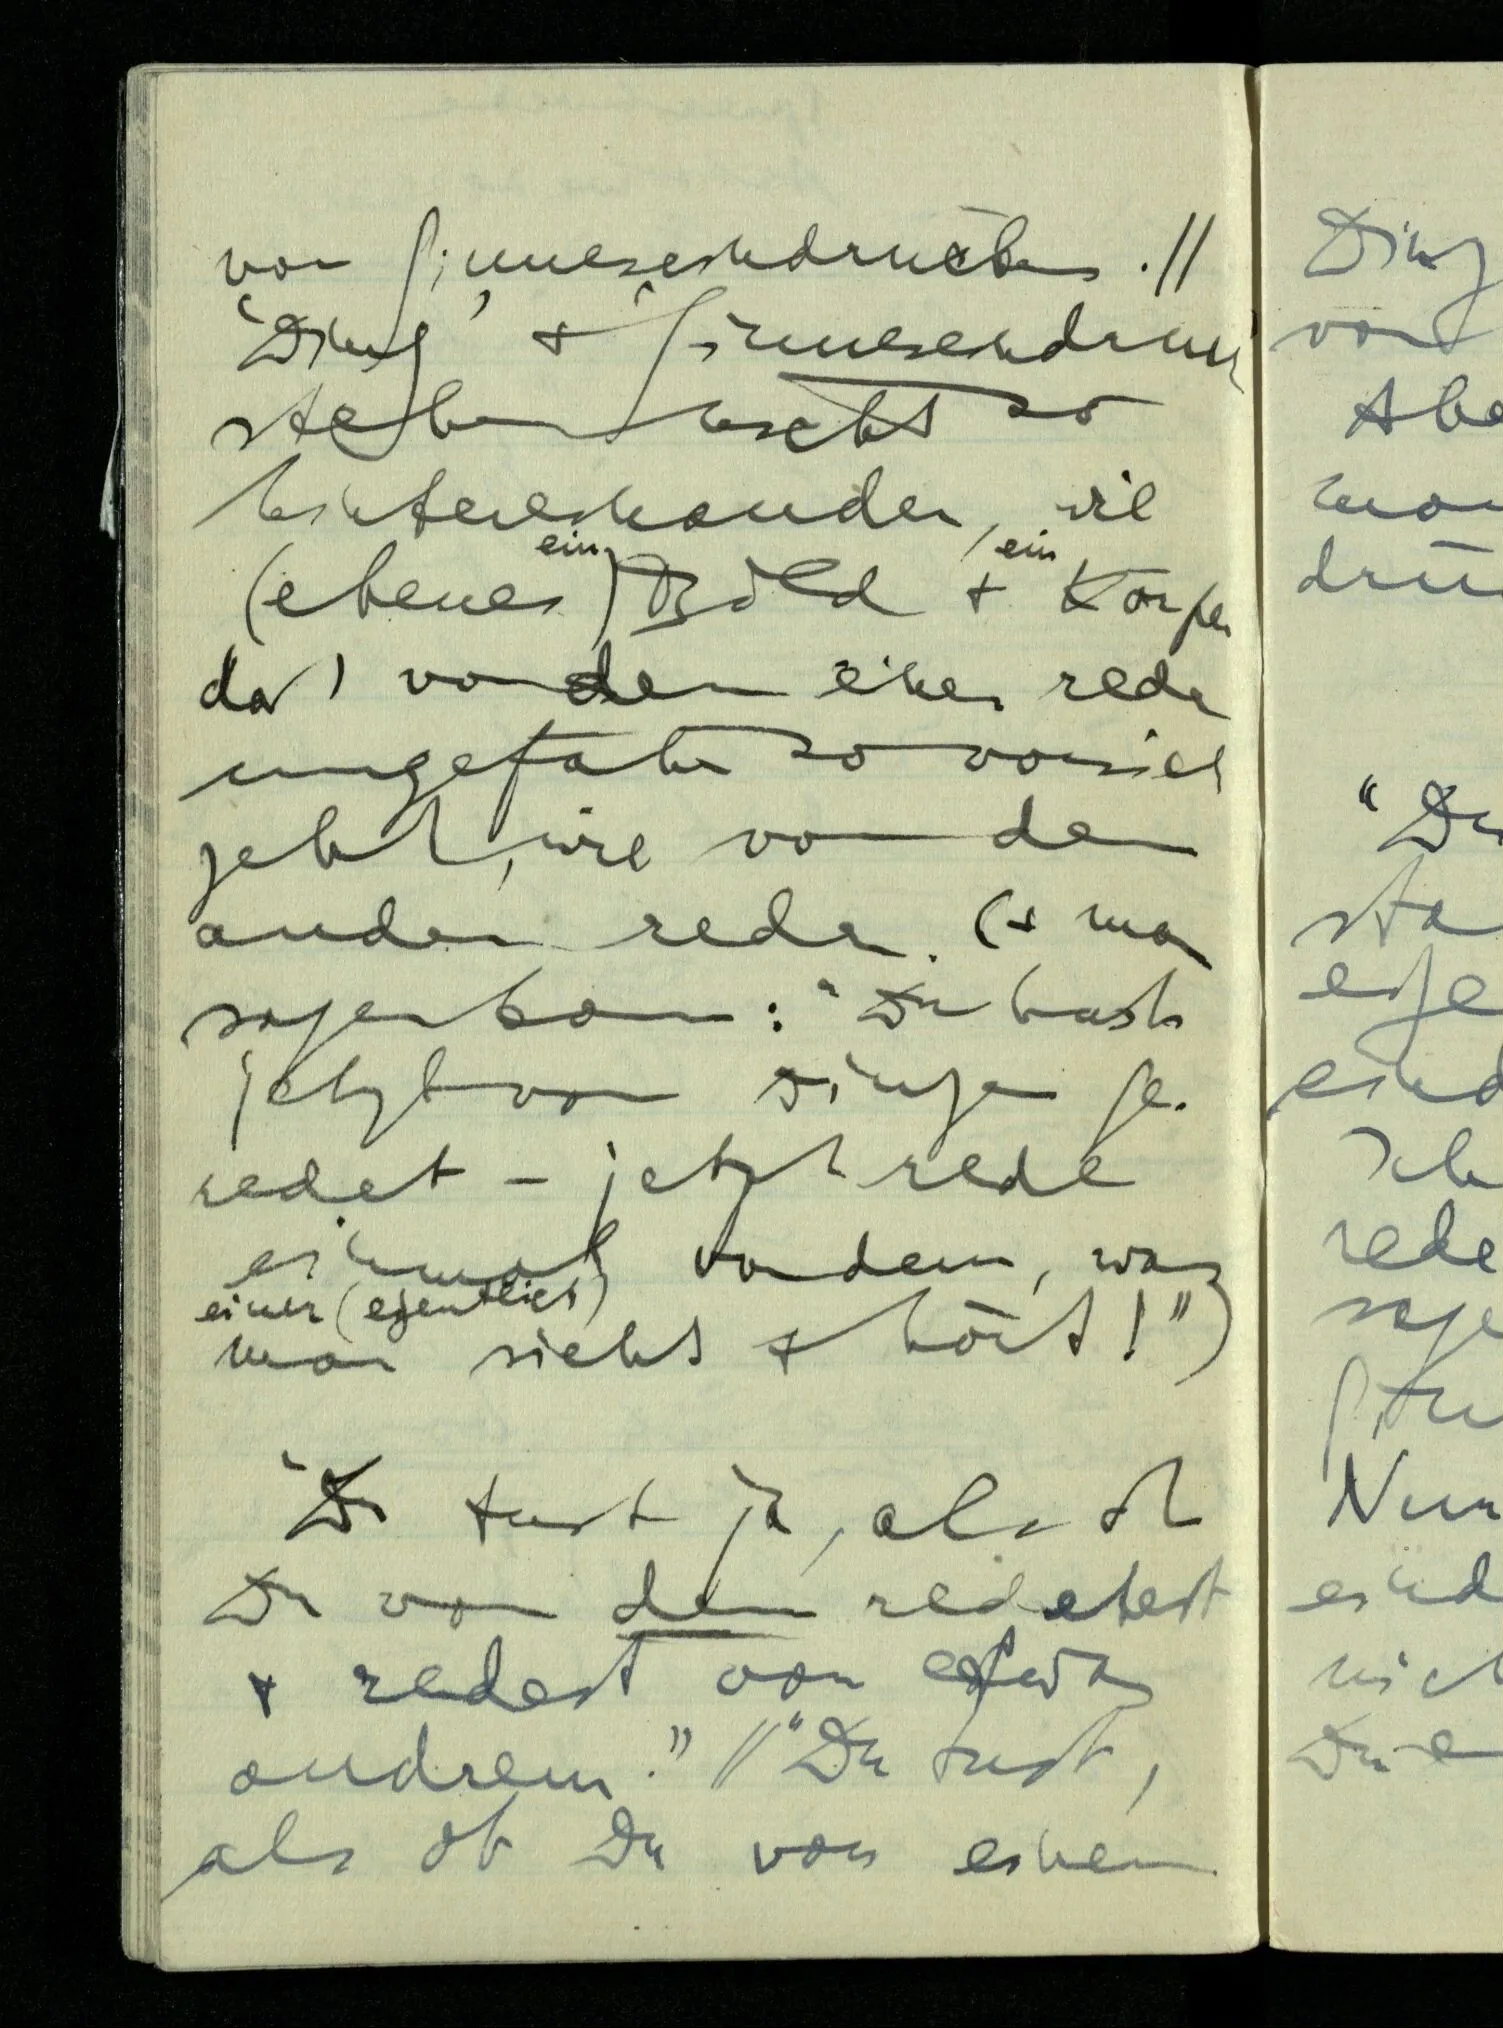 von Sinneseindrücken. //
'Ding' + 'Sinneseindruck
stehen nicht so
hintereinander, wie
(ebenes) ein Bild + ein Körper
daß von dem einen reden
ungefähr so vor sich
geht, wie von dem
andern reden. (+ man
sagen kann: "Du hast
jetzt von Dingen ge-
redet – jetzt rede
einmal von dem, was
einer (eigentlich)
man sieht + hört!")
"Du tust ja, als ob
Du von dem redetest
+ redest von etwas
andrem." // "Du tust,
als ob Du von einem
Ding
von
Abe
man
drü
"Du
sta
eige
eind
Ich
rede
sage
Nun
eind
nich
Du e